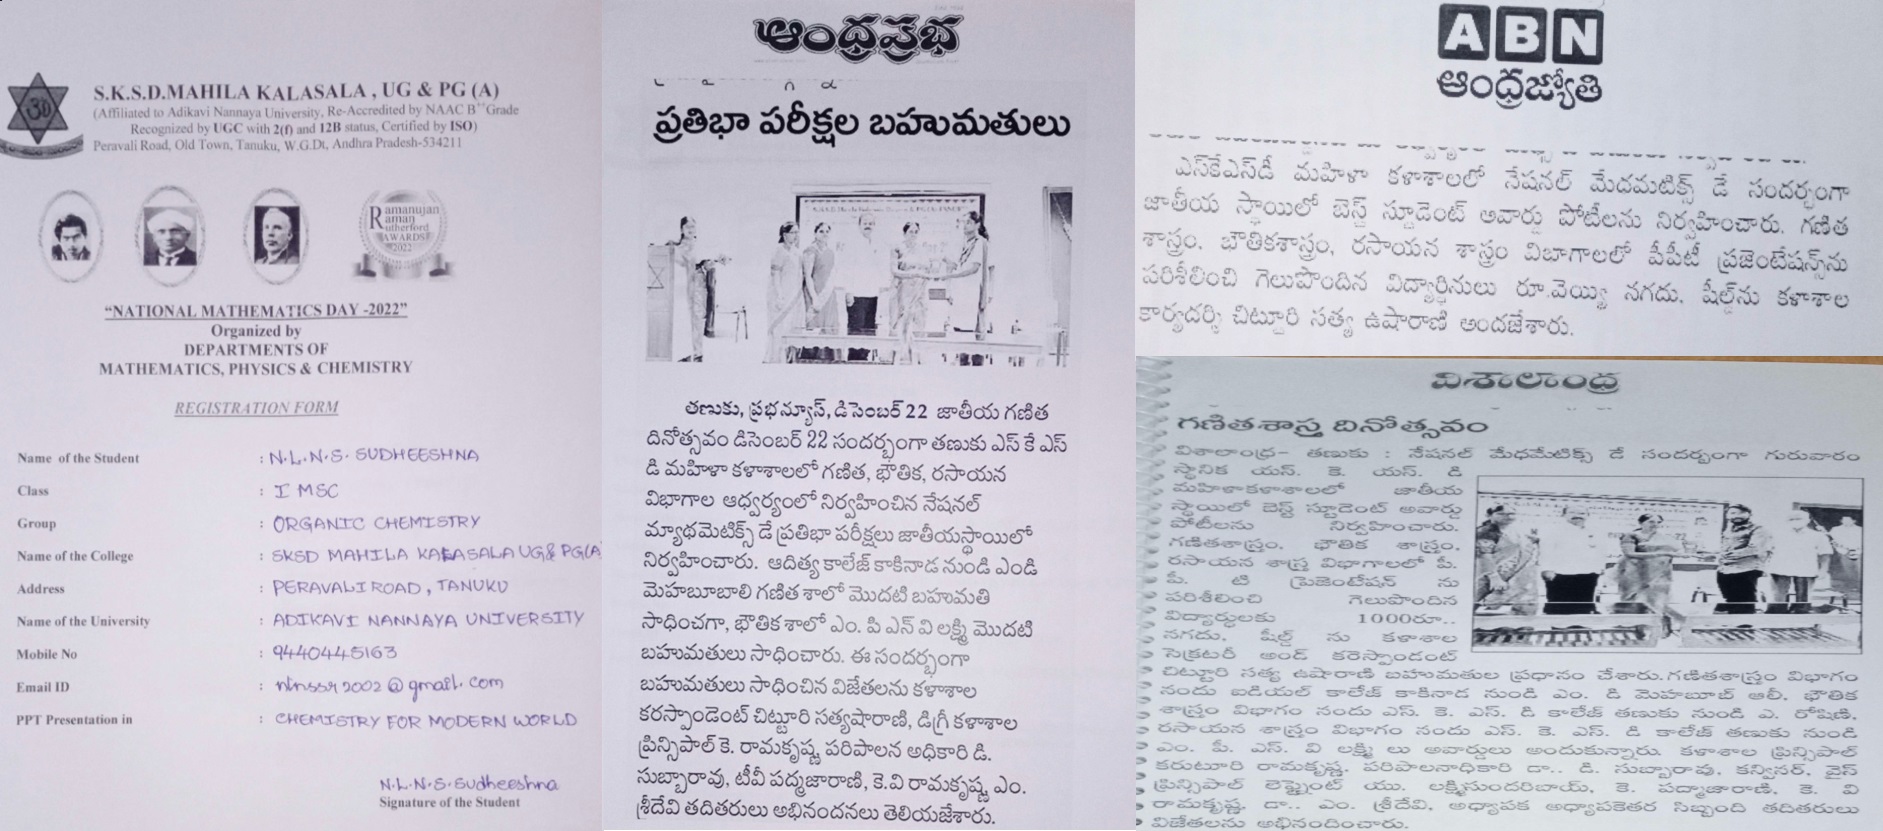 S.K.S.D.MAHILA KALASALA , UG & PG (A)
(Affiliated to Adikavi Nannaya University, Re-Accredited by NAAC B++Grade
Recognized by UGC with 2(f) and 12B status, Certified by ISO)
Peravali Road, Old Town, Tanuku, W.G.Dt, Andhra Pradesh-534211
Ramanujan
Raman
Rutherford
AWARDS
2022
“NATIONAL MATHEMATICS DAY -2022”
Organized by
DEPARTMENTS OF
MATHEMATICS, PHYSICS & CHEMISTRY
REGISTRATION FORM
Name of the Student : N.L.N.S. SUDHEESHNA
Class : I MSC
Group : ORGANIC CHEMISTRY
Name of the College : SKSD MAHILA KALASALA UG& PG(A
Address : PERAVALI ROAD, TANUKU
Name of the University : ADIKAVI NANNAYA UNIVERSITY
Mobile No : 9440445163
Email ID : nlnssr2002@gmail.com
PPT Presentation in : CHEMISTRY FOR MODERN WORLD
N.L.N.S.Sudheeshna
Signature of the Student
ఆంధ్రప్రభ
ప్రతిభా పరీక్షల బహుమతులు
తణుకు, ప్రభన్యూస్, డిసెంబర్ 22 జాతీయ గణిత
దినోత్సవం డిసెంబర్ 22 సందర్భంగా తణుకు ఎస్ కే ఎస్
డి మహిళా కళాశాలలో గణిత, భౌతిక, రసాయన
విభాగాల ఆధ్వర్యంలో నిర్వహించిన నేషనల్
మ్యాథమెటిక్స్ డే ప్రతిభా పరీక్షలు జాతీయస్థాయిలో
నిర్వహించారు. ఆదిత్య కాలేజ్ కాకినాడ నుండి ఎండి
మెహబూబాలి గణిత శాలో మొదటి బహుమతి
సాధించగా, భౌతికశాలో ఎం. పి ఎన్ వి లక్ష్మి మొదటి
బహుమతులు సాధించారు. ఈ సందర్భంగా
బహుమతులు సాధించిన విజేతలను కళాశాల
కరస్పాండెంట్ చిట్టూరి సత్యషారాణి, డిగ్రీ కళాశాల
ప్రిన్సిపాల్ కె. రామకృష్ణ పరిపాలన అధికారి డి.
సుబ్బారావు, టీవీ పద్మజారాణి, కె.వి రామకృష్ణ ఎం.
శ్రీదేవి తదితరులు అభినందనలు తెలియజేశారు.
ABN
ఆంధ్రజ్యోతి
ఎస్‌కేఎస్‌డీ మహిళా కళాశాలలో నేషనల్ మేథమటిక్స్ డే సందర్భంగా
జాతీయ స్థాయిలో బెస్ట్ స్టూడెంట్ అవార్డు పోటీలను నిర్వహించారు. గణిత
శాస్త్రం, భౌతికశాస్త్రం, రసాయన శాస్త్రం విబాగాలలో పీపీటీ ప్రజెంటేషన్స్‌ను
పరిశీలించి గెలుపొందిన విద్యార్థినులు రూ.వెయ్యి నగదు, షీల్డ్‌ను కళాశాల
కార్యదర్శి చిట్టూరి సత్య ఉషారాణి అందజేశారు.
విశాలాంధ్ర
గణితశాస్త్ర దినోత్సవం
విశాలాంధ్ర- తణుకు : నేషనల్ మేధమేటిక్స్ డే సందర్బంగా గురువారం
స్థానిక యస్. కె. యస్. డి
మహిళాకళాశాలలో జాతీయ
స్థాయిలో బెస్ట్ స్టూడెంట్ అవార్డు
పోటీలను నిర్వహించారు.
గణితశాస్త్రం, భౌతిక శాస్త్రం,
రసాయన శాస్త్ర విభాగాలలో పి.
పి. టి ప్రెజెంటేషన్ ను
పరిశీలించి గెలుపొందిన
విద్యార్థులకు 1000రూ..
నగదు, షీల్డ్ ను కళాశాల
సెక్రటరీ అండ్ కరెస్పాండంట్
చిట్టూరి సత్య ఉషారాణి బహుమతుల ప్రధానం చేశారు.గణితశాస్త్రం విభాగం
నందు ఐడియల్ కాలేజ్ కాకినాడ నుండి ఎం. డి మెహబూబ్ ఆలీ, భౌతిక
శాస్త్రం విభాగం నందు ఎస్. కె. ఎస్. డి కాలేజ్ తణుకు నుండి ఎ. రోషిణి,
రసాయన శాస్త్రం విభాగం నందు ఎస్. కె. ఎస్. డి కాలేజ్ తణుకు నుండి
ఎం. పి. ఎస్. వి లక్ష్మి లు అవార్డులు అందుకున్నారు. కళాశాల ప్రిన్సిపాల్
కరుటూరి రామకృష్ణ, పరిపాలనాధికారి డా.. డి. సుబ్బారావు, కన్వీనర్, వైస్
ప్రిన్సిపాల్ లెఫ్టైనెంట్ యు. లక్ష్మిసుందరిబాయ్, కె. పద్మజారాణి, కె. వి
రామకృష్ణ, డా.. ఎం. శ్రీదేవి, అధ్యాపక అధ్యాపకెతర సిబ్బంది తదితరులు
విజేతలను అభినందించారు.